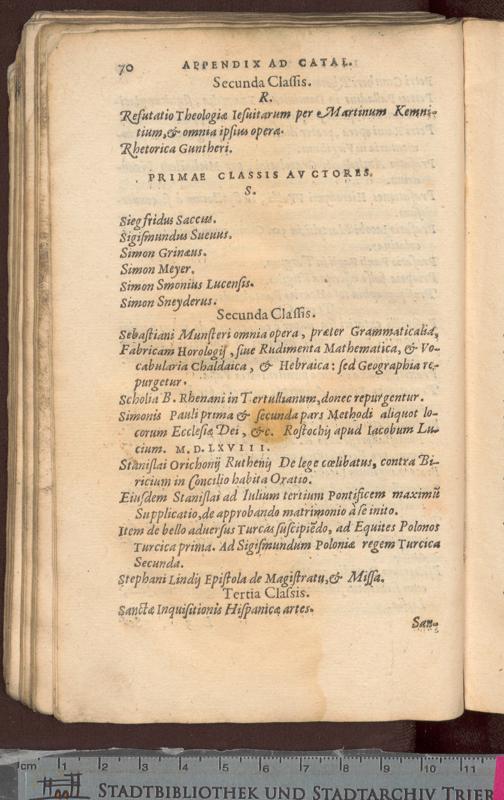 70 APPENDIX AD CATAL.
Secunda Claſſis.
R.
Refutatio Theologiæ Ieſuitarum per Martinum Kemni-
tium, & omnia ipſius opera.
Rhetorica Guntheri.
PRIMAE CLASSIS AVCTORES.
S.
Siegfridus Saccus.
Sigiſmundus Sueuus.
Simon Grinæus.
Simon Meyer.
Simon Smonius Lucenſis.
Simon Sneyderus.
Secunda Claſſis.
Sebaſtiani Munſteri omnia opera, præter Grammaticalia,
Fabricam Horologij, ſiue Rudimenta Mathematica, & Vo-
cabularia Chaldaica, & Hebraica: ſed Geographia re-
purgetur.
Scholia B. Rhenani in Tertullianum, donec repurgentur.
Simonis Pauli prima & ſecunda pars Methodi aliquot lo-
corum Eccleſiæ Dei, &c. Roſtochij apud Iacobum Lu-
cium. M. D. LXVIII.
Stanislai Orichonij Ruthenij De lege cœlibatus, contra Bi-
ricium in Concilio habita Oratio.
Eiuſdem Stanislai ad Iulium tertium Pontificem maximũ
Supplicatio, de approbando matrimonio à ſe inito.
Item de bello aduerſus Turcas ſuſcipiẽdo, ad Equites Polonos
Turcica prima. Ad Sigiſmundum Poloniæ regem Turcica
Secunda.
Stephani Lindij Epiſtola de Magiſtratu, & Miſſa.
Tertia Claſſis.
Sanctæ Inquiſitionis Hiſpanicæ artes.
San-
cm 1 2 3 4 5 6 7 8 9 10 11
STADTBIBLIOTHEK UND STADTARCHIV TRIER